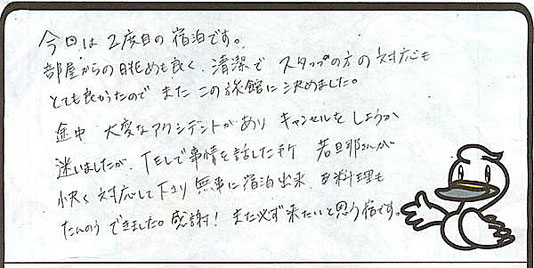 今回は2度目の宿泊です。
部屋からの眺めも良く、清潔で スタッフの方の対応も
とても良かったので またこの旅館に決めました。
途中 大変なアクシデントがあり キャンセルを しようか
迷いましたが、TELで事情を話した所 若旦那さんが
快く対応して下さり 無事に宿泊出来、お料理も
たんのう できました。感謝! また必ず来たいと思う宿です。